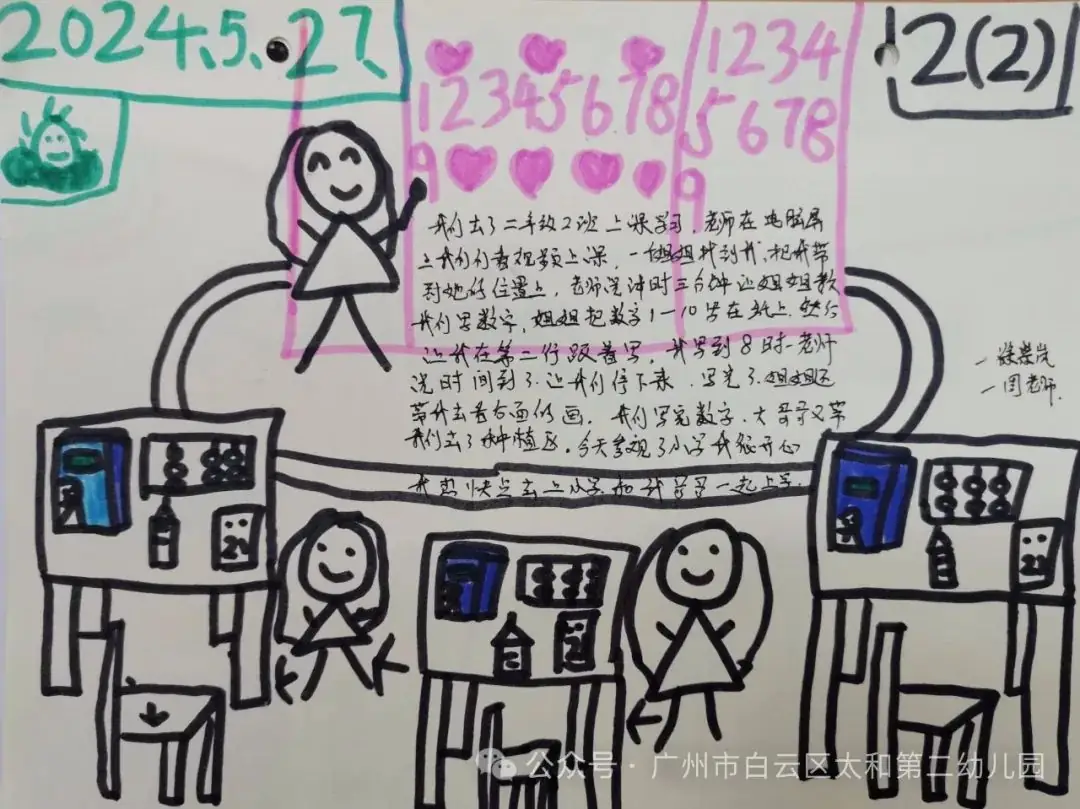 2024.5.27.
2(2)
12345678
9
1234
5678
9
我们去了二年级2班上课学习，老师在电脑屏
上我们们看视频上课，一个姐姐找到我，把我带
到她的位置上，老师说计时三分钟让姐姐教
我们写数字，姐姐把数字1-10写在纸上，然后
让我在第二行跟着写，我写到8时老师
说时间到了，让我们停下来，写完了，姐姐还
带我去看后面的画，我们写完数字，大哥哥又带
我们去了种植区，今天参观了小学我很开心
我想快点去上小学和我哥哥一起上学。
一闫老师
公众号·广州市白云区太和第二幼儿园